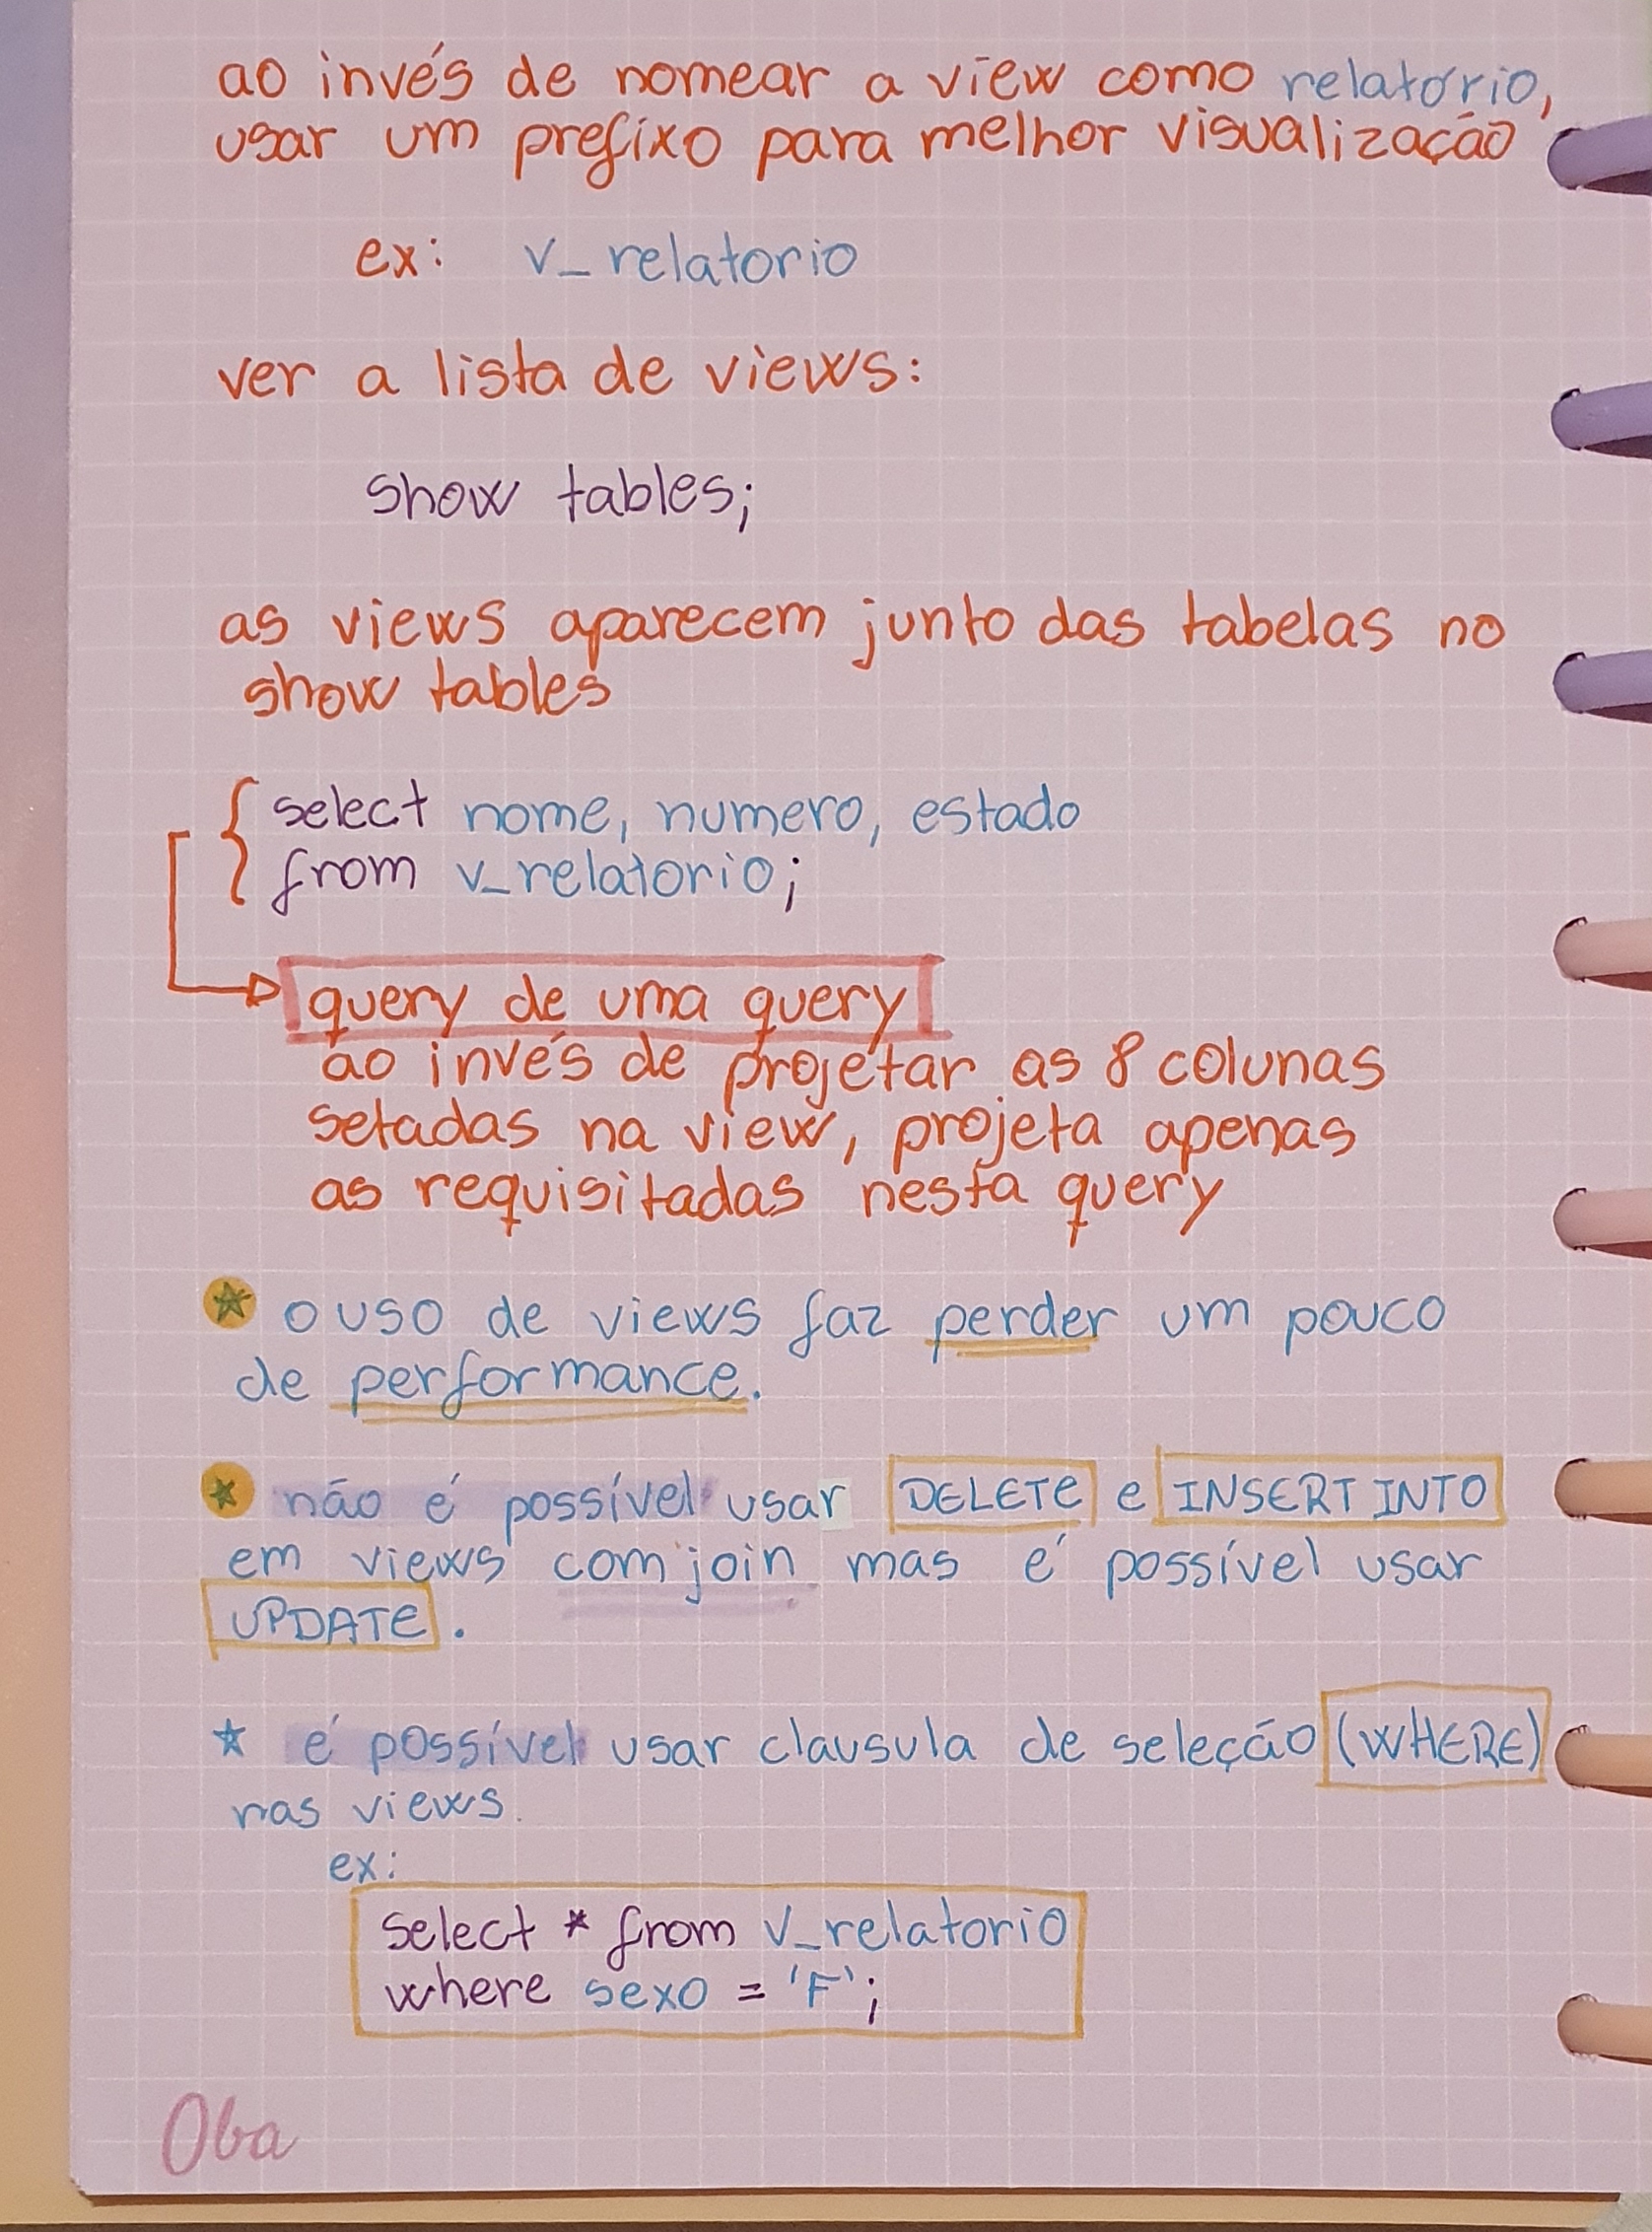 ao invés de nomear a view como relatório,
usar um prefixo para melhor visualização
ex: v_relatorio
ver a lista de views:
show tables;
as views aparecem junto das tabelas no
show tables
select nome, numero, estado
from v_relatorio;
query de uma query
ao invés de projetar as 8 colunas
setadas na view, projeta apenas
as requisitadas nesta query
★ o uso de views faz perder um pouco
de performance.
★ não é possível usar DELETE e INSERT INTO
em views com join mas é possível usar
UPDATE.
★ é possível usar clausula de seleção (WHERE)
nas views.
ex:
select * from v_relatorio
where sexo = 'F';
Oba